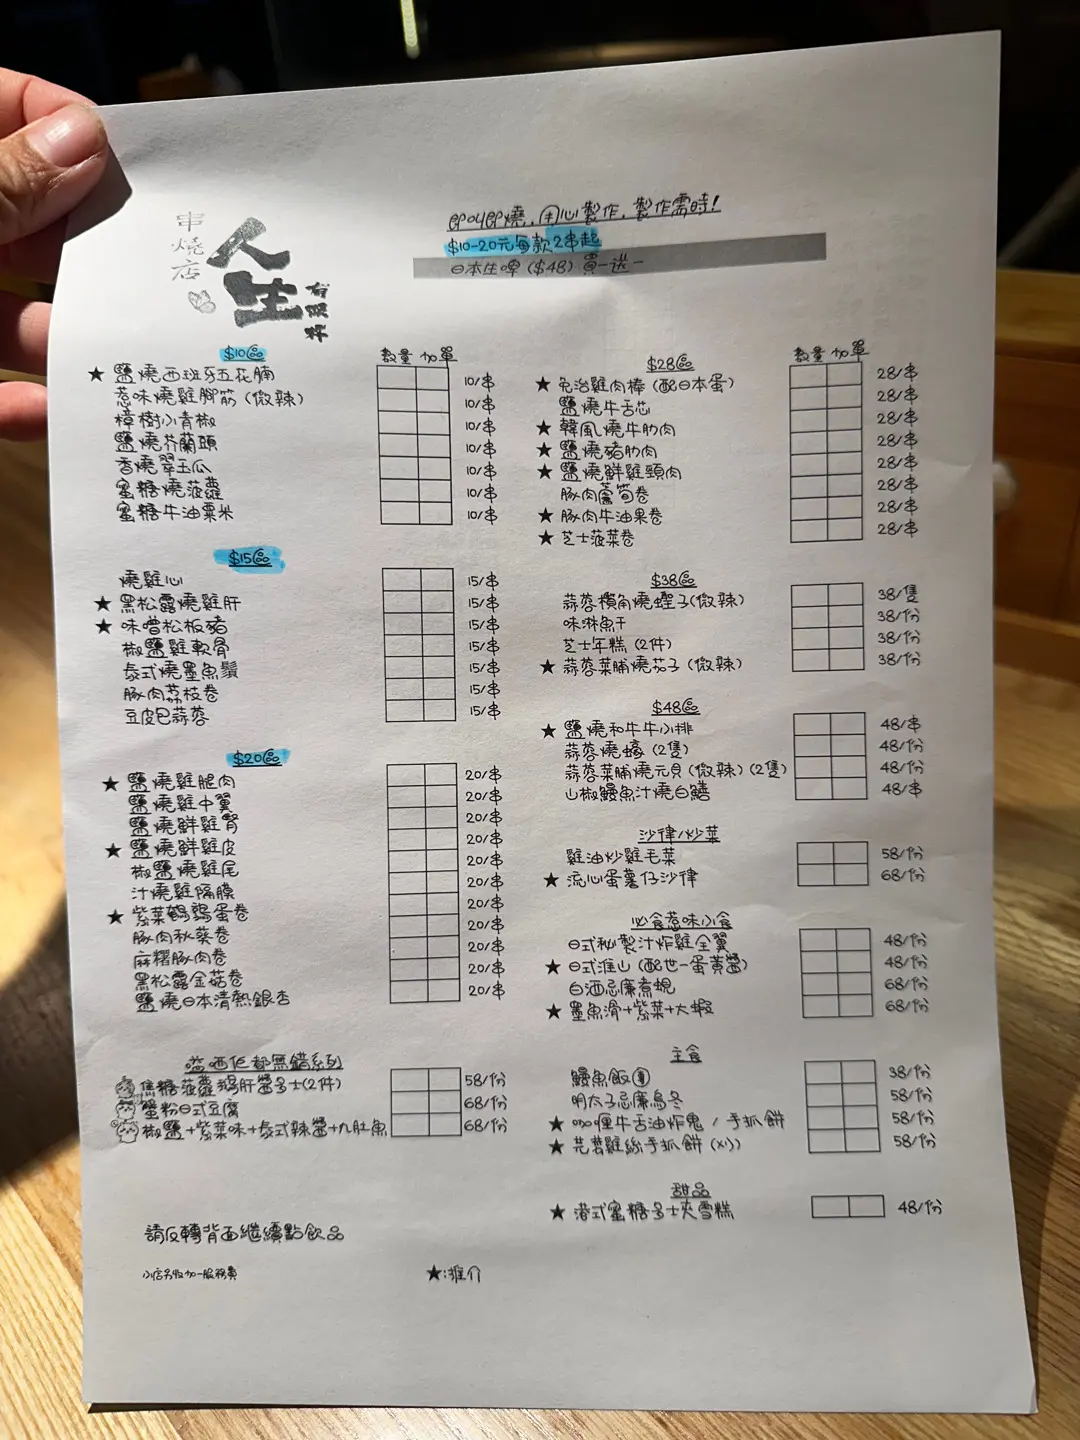 串燒店
人生
有限杯
即叫即燒，用心製作，製作需時！
$10-20元每款2串起
日本生啤 ($48) 買一送一
$10區
數量 加單
★ 鹽燒西班牙五花腩 10/串
惹味燒雞腳筋 (微辣) 10/串
樟樹小青椒 10/串
鹽燒芥蘭頭 10/串
香燒翠玉瓜 10/串
蜜糖燒菠蘿 10/串
蜜糖牛油粟米 10/串
$15區
燒雞心 15/串
★ 黑松露燒雞肝 15/串
★ 味噌松板豬 15/串
椒鹽雞軟骨 15/串
泰式燒墨魚鬚 15/串
豚肉荔枝卷 15/串
豆皮包蒜蓉 15/串
$20區
★ 鹽燒雞腿肉 20/串
鹽燒雞中翼 20/串
鹽燒鮮雞腎 20/串
★ 鹽燒鮮雞皮 20/串
椒鹽燒雞尾 20/串
汁燒雞隔膜 20/串
★ 紫菜鵪鶉蛋卷 20/串
豚肉秋葵卷 20/串
麻糬豚肉卷 20/串
黑松露金菇卷 20/串
鹽燒日本清熱銀杏 20/串
嗌哂佢都無錯系列
焦糖菠蘿鵝肝醬多士(2件) 58/份
蟹粉日式豆腐 68/份
椒鹽+紫菜味+泰式辣醬+九肚魚 68/份
請反轉背面繼續點飲品
小店另收加一服務費
★:推介
$28區
數量 加單
★ 免治雞肉棒 (配日本蛋) 28/串
鹽燒牛舌芯 28/串
★ 韓風燒牛肋肉 28/串
★ 鹽燒豬肋肉 28/串
★ 鹽燒鮮雞頸肉 28/串
豚肉蘆筍卷 28/串
★ 豚肉牛油果卷 28/串
★ 芝士菠菜卷 28/串
$38區
蒜蓉欖角燒蟶子(微辣) 38/隻
味淋魚干 38/份
芝士年糕 (2件) 38/份
★ 蒜蓉菜脯燒茄子 (微辣) 38/份
$48區
★ 鹽燒和牛牛小排 48/串
蒜蓉燒蠔 (2隻) 48/份
蒜蓉菜脯燒元貝 (微辣) (2隻) 48/份
山椒鰻魚汁燒白鱔 48/串
沙律/炒菜
雞油炒雞毛菜 58/份
★ 流心蛋薯仔沙律 68/份
必食惹味小食
日式秘製汁炸雞全翼 48/份
★ 日式淮山 (配世一蛋黃醬) 48/份
白酒忌廉煮蜆 68/份
★ 墨魚滑+紫菜+大蝦 68/份
主食
鰻魚飯 38/份
明太子忌廉烏冬 58/份
★ 咖哩牛舌油炸鬼 / 手抓餅 58/份
★ 芫荽雞絲手抓餅 (凍) 58/份
甜品
★ 港式蜜糖多士夾雪糕 48/份